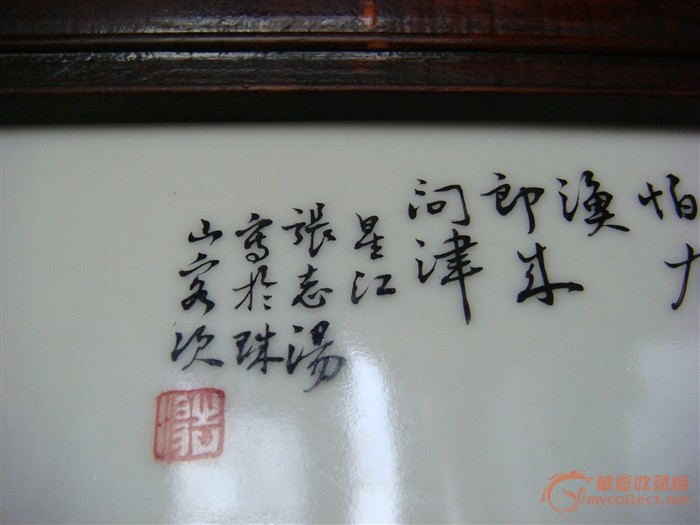 怕
漁
郎來
問津
星江
張志湯
寫於珠
山客次
志湯
華夏收藏網
mycollect.net